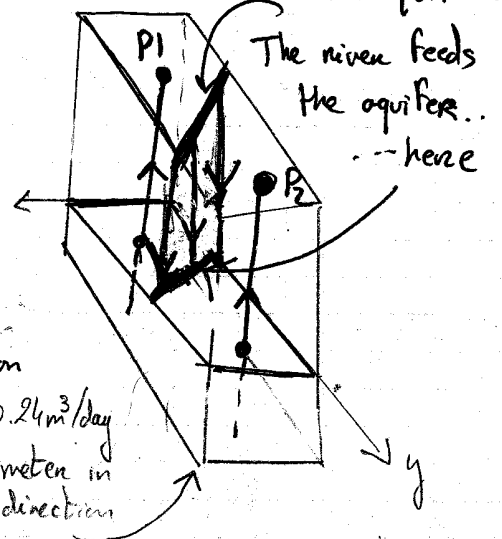 P1
The river feeds
the aquifere..
...here
P2
on
0.24m³/day
meter in
direction
y